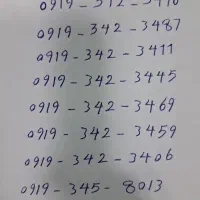 0919 - 342 - 3487
0919 - 342 - 3411
0919 - 342 - 3445
0919 - 342 - 3469
0919 - 342 - 3459
0919 - 342 - 3406
0919 - 345 - 8013